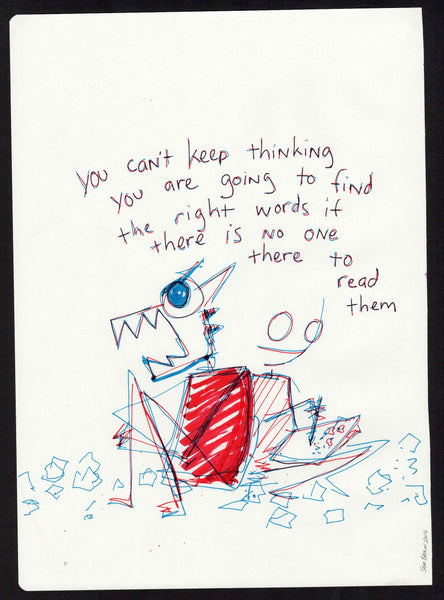 you can't keep thinking
you are going to find
the right words if
there is no one
there to
read
them